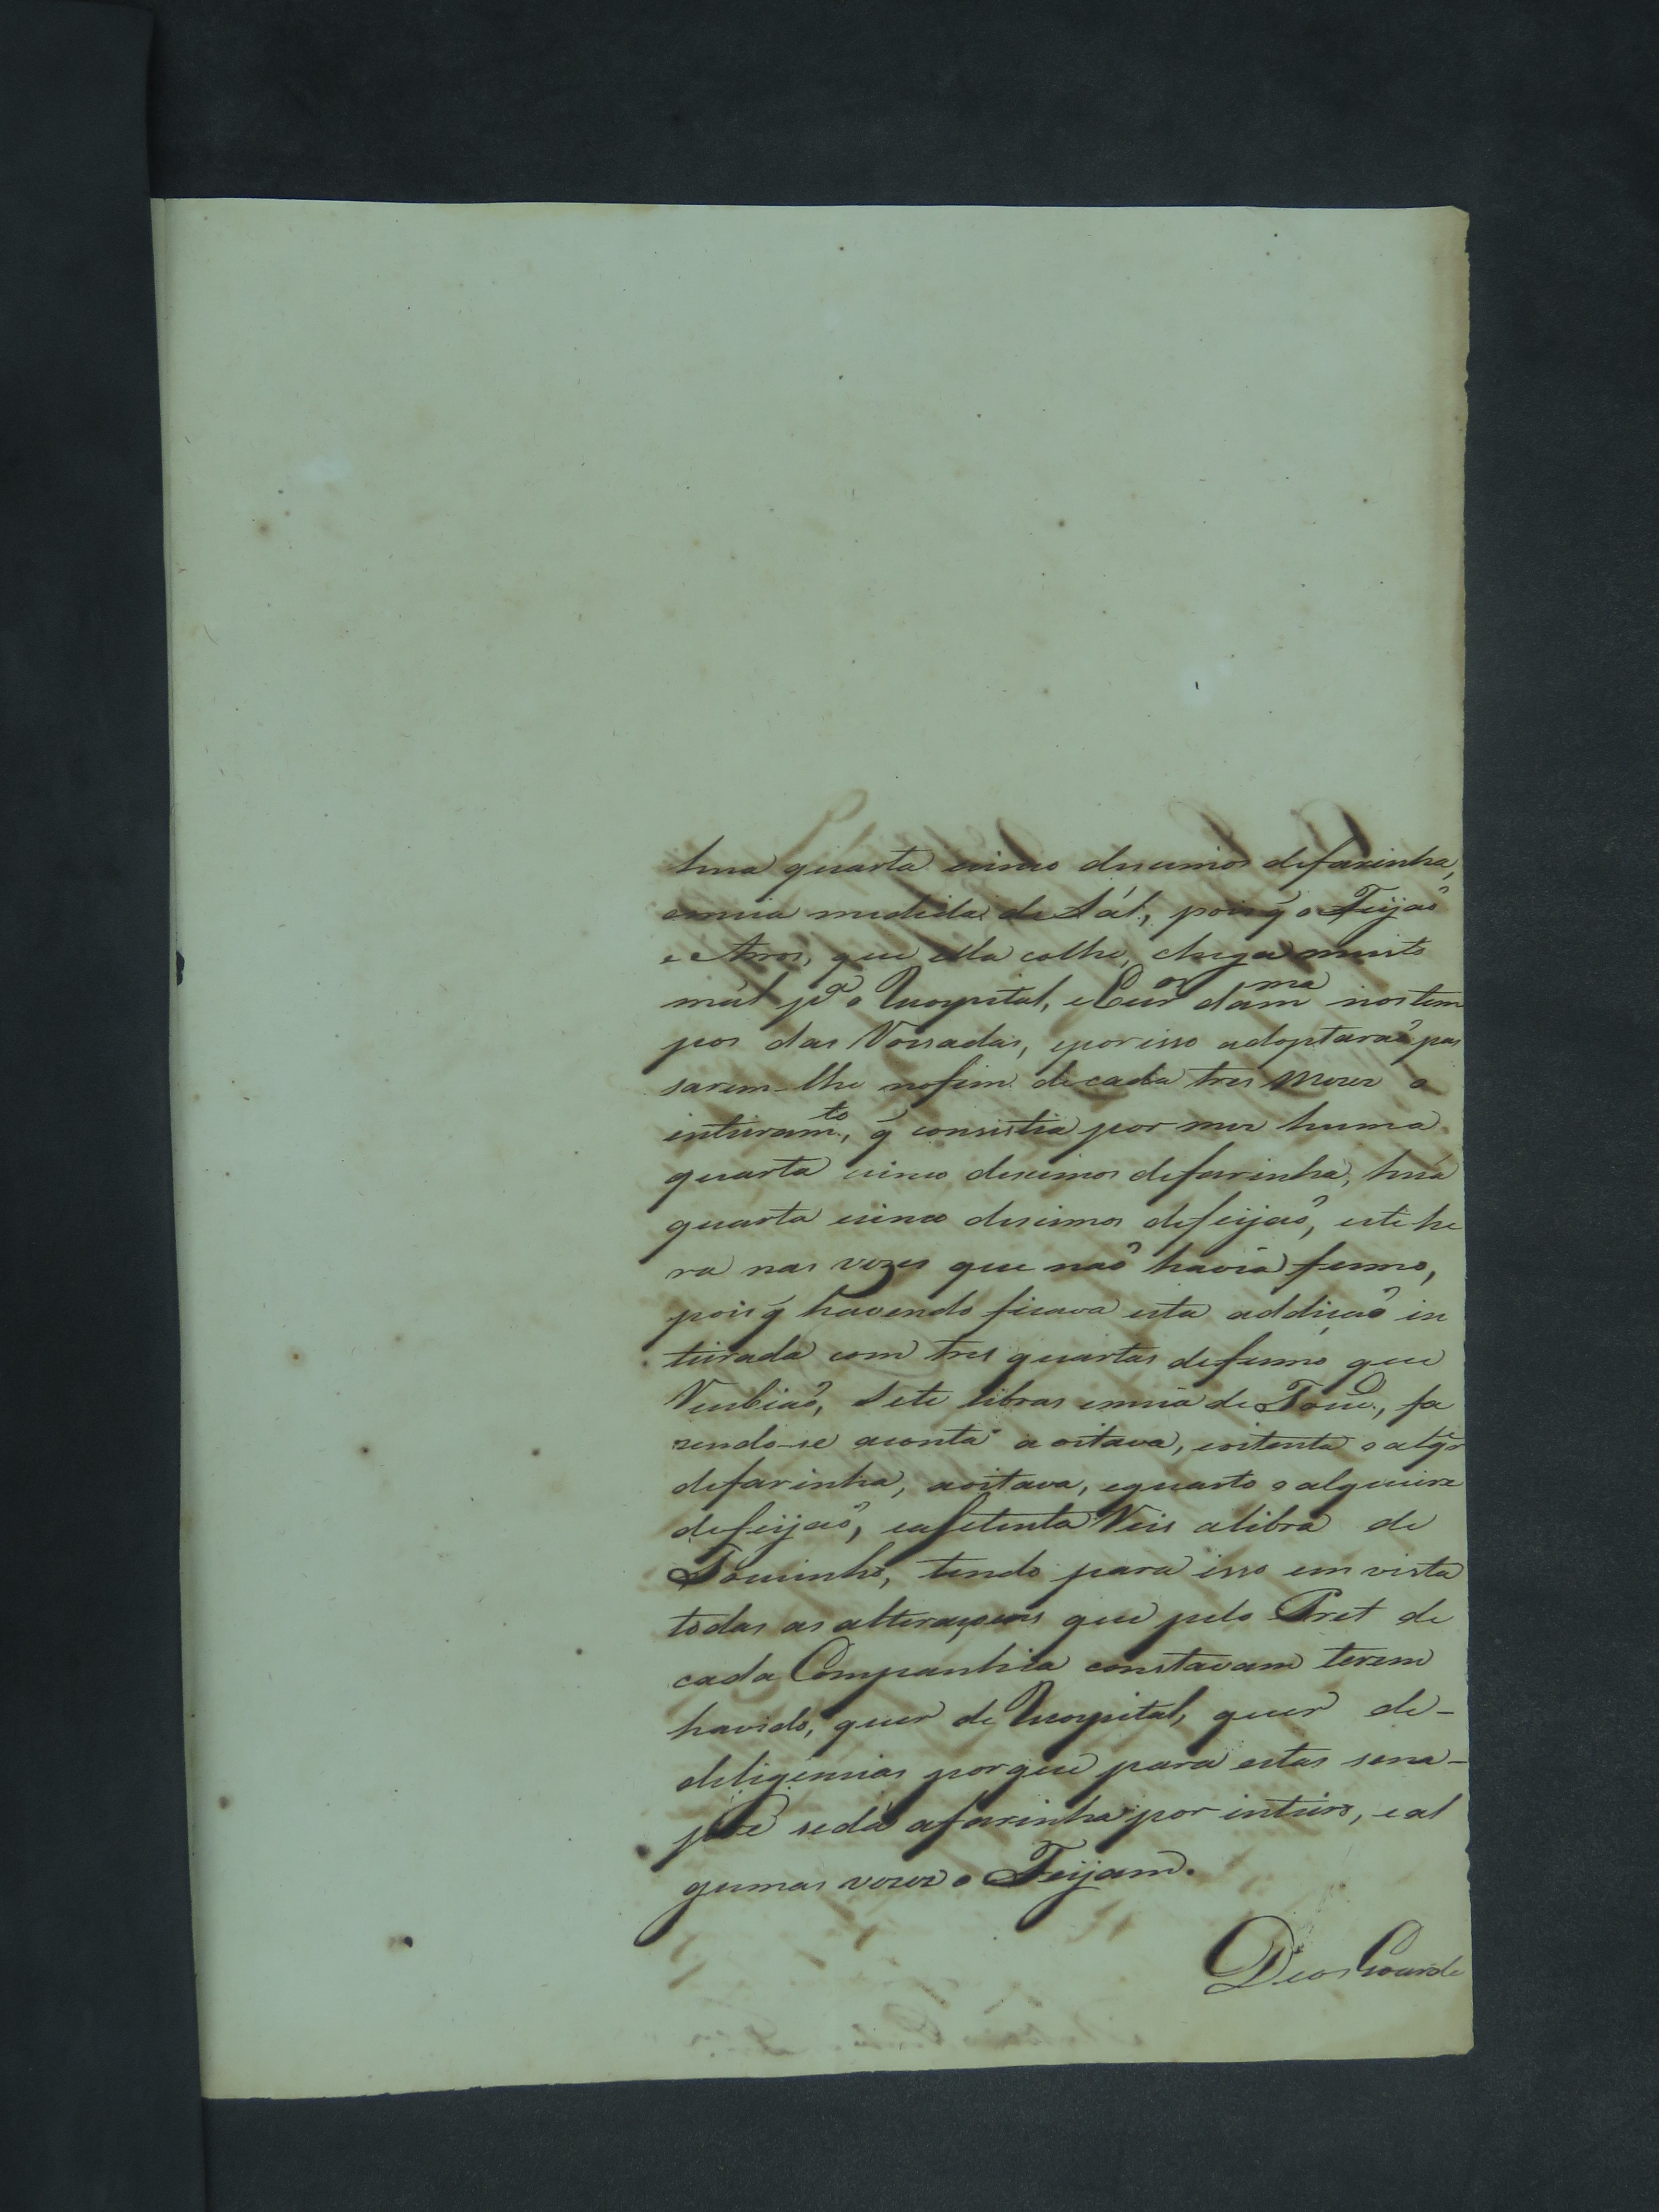 huã quarta cinco decimos defarinha,
emeia medida de Sál, pois q̃ o Feijaõ
e Arros, que ella colhe, chega muito
mál pª o Hospital, e
pos das Rossadas, eporisso adoptaraõ pas
sarem-lhe nofim decada tres Mezes o
inteiramto, q̃ consistia por mez huma
quarta cinco decimos defarinha, huã
quarta cinco decimos defeijaõ, este he
ra nas vezes que naõ havia fumo,
pois q̃ havendo ficava esta addiçaõ in
teirada com tres quartas defumo que
Recebiaõ, Sete libras emeia de Toucº, fa
zendo-se aconta a oitava, eoitenta o alqr
defarinha, aoitava, equarto o alqueire
defeijaõ, easetenta Reis alibra de
Toucinho, tendo para isso em vista
todas as alteraçoens que pelo Pret de
cada Companhia constavam terem
havido, quer de Hospital, quer de-
deligencias porque para estas sena-
pre sedá afarinha por inteiro, e al
gumas vezes o Feijam.
Deos Guarde